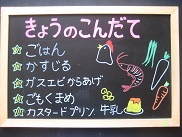 きょうのこんだて
ごはん
かすじる
ガスエビからあげ
ごもくまめ
カスタードプリン 牛乳